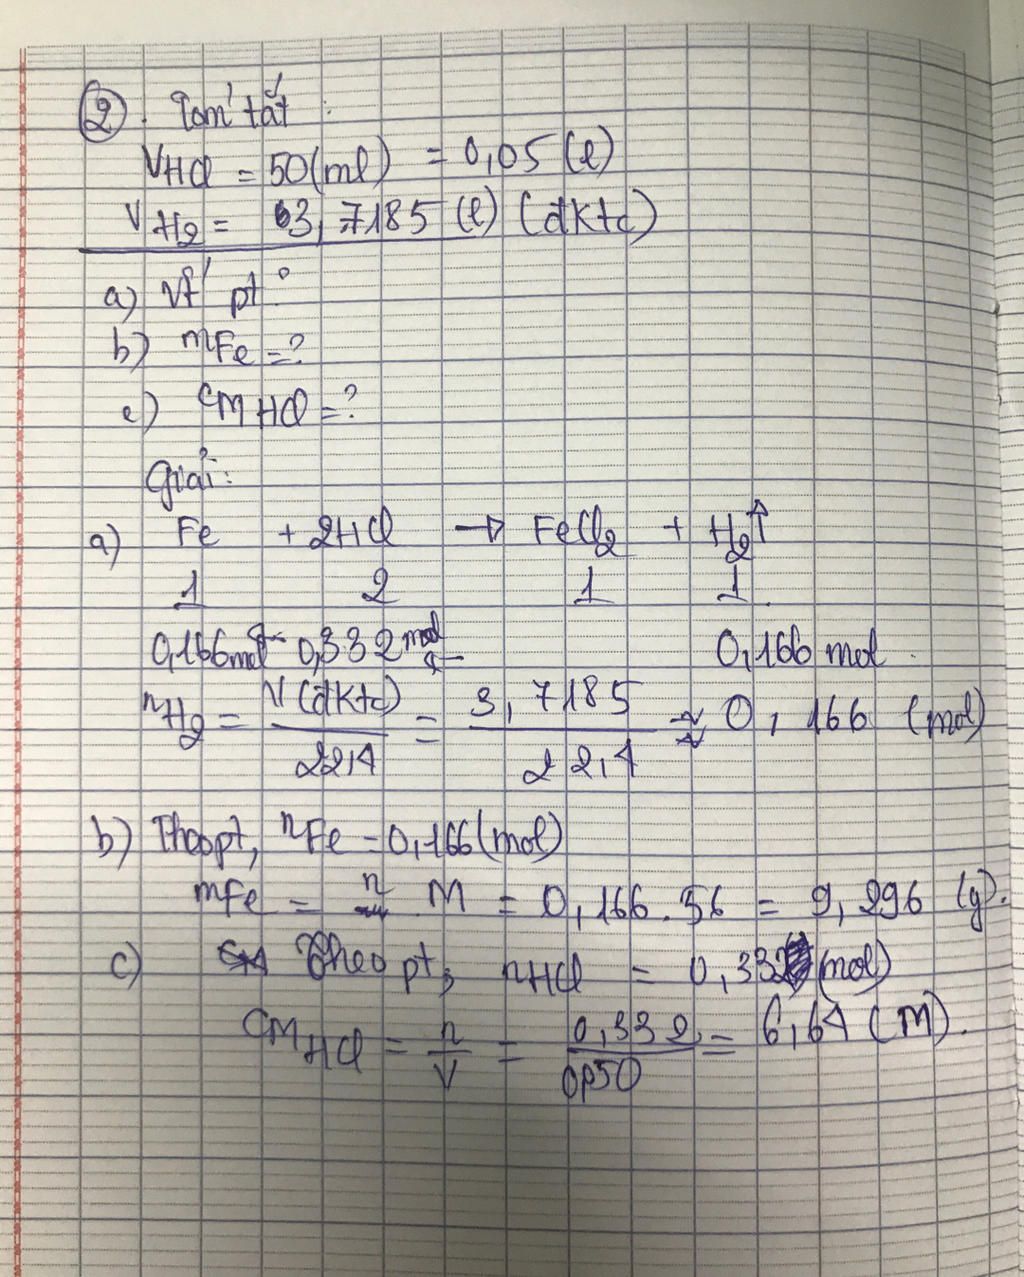 ② Tóm tắt :
VHCl = 50(ml) = 0,05 (l)
VH2 = 3,7185 (l) (đktc)
a) Vt pt?
b) mFe = ?
c) CM HCl = ?
Giải:
a) Fe + 2HCl → FeCl2 + H2↑
1 2 1 1
0,166mol ← 0,332mol ← 0,166 mol.
nH2 = V(đktc) / 22,4 = 3,7185 / 22,4 ≈ 0,166 (mol)
b) Theo pt, nFe = 0,166(mol)
mFe = n . M = 0,166.56 = 9,296 (g).
c) Theo pt, nHCl = 0,332 (mol)
CM HCl = n / V = 0,332 / 0,050 = 6,64 (M).